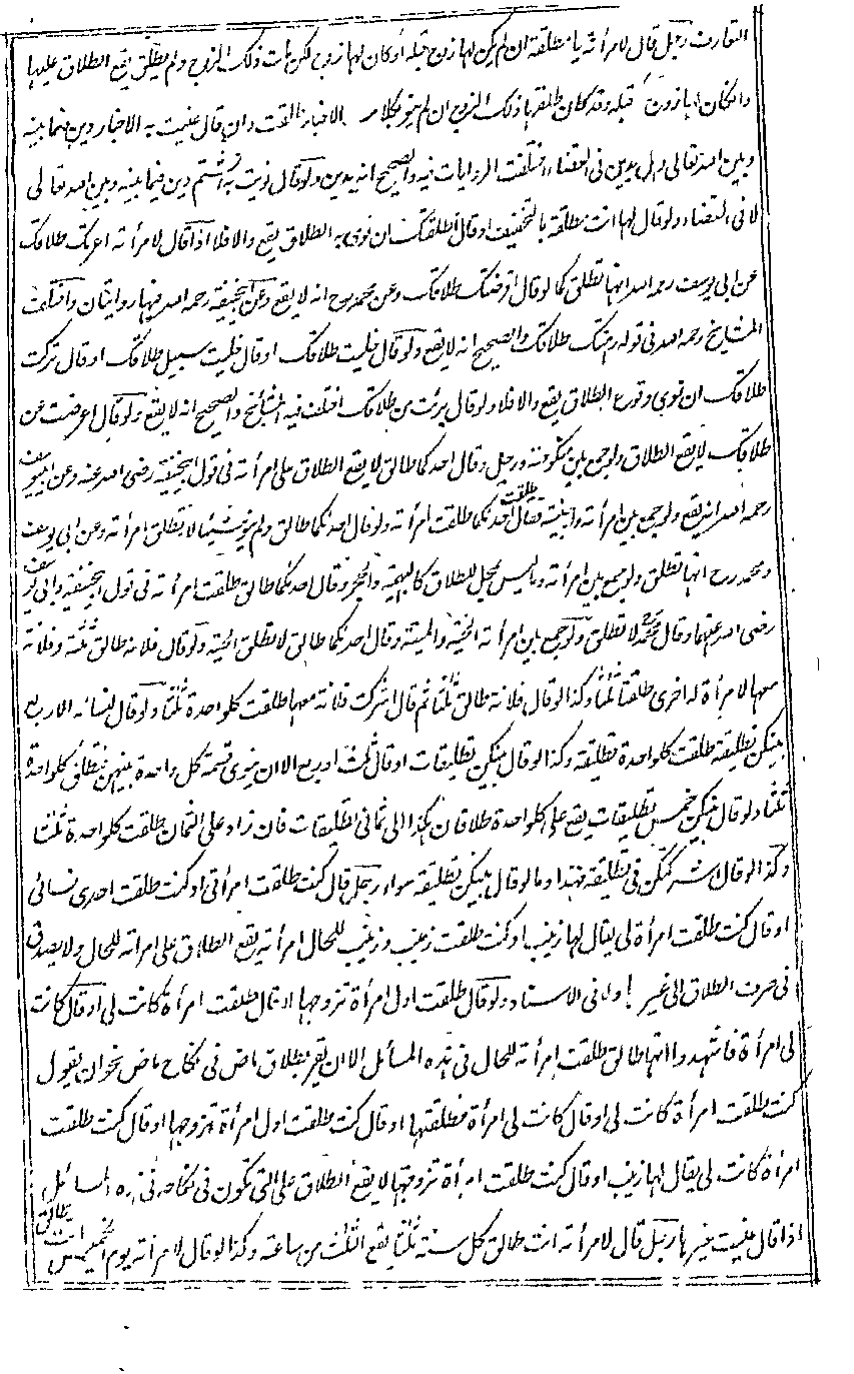 التعارف رجل قال لامرأته يا مطلقة ان لم يكن لها زوج قبله أو كان لها زوج لكن مات ذلك الزوج ولم يطلق يقع الطلاق عليها
وان كان لها زوج قبله وقد كان طلقها ذلك الزوج ان لم ينو بكلامه الاخبار طلقت وان قال عنيت به الاخبار دين فيما بينه
وبين الله تعالى وهل يدين فى القضاء اختلفت الروايات فيه والصحيح انه يدين ولو قال نويت به الشتم دين فيما بينه وبين الله تعالى
لا فى القضاء ولو قال لها انت مطلقة بالتخفيف او قال اطلقتك ان نوى به الطلاق يقع والا فلا اذا قال لامرأته اعرتك طلاقك
عن ابى يوسف رحمه الله انها تطلق كما لو قال اقرضتك طلاقك وعن محمد رح انه لا يقع وعن ابيحنيفة رحمه الله فيها روايتان واختلفت
المشايخ رحمه الله فى قوله رهنتك طلاقك والصحيح انه لا يقع ولو قال خليت طلاقك او قال خليت سبيل طلاقك او قال تركت
طلاقك ان نوى وقوع الطلاق يقع والا فلا ولو قال برئت من طلاقك اختلف فيه المشايخ والصحيح انه لا يقع ولو قال اعرضت عن
طلاقك لا يقع الطلاق ولو جمع بين منكوحته ورجل وقال احدكما طالق لا يقع الطلاق على امرأته فى قول ابيحنيفة رضى الله عنه وعن ابيوسف
رحمه الله انه يقع ولو جمع بين امرأته واجنبية فقال طلقت احدكما طلقت امرأته ولو قال احدكما طالق ولم ينو شيئا لا تطلق امرأته وعن ابى يوسف
ومحمد رح انها تطلق ولو جمع بين امرأته وما ليس بمحل للطلاق كالبهيمة والحجر وقال احدكما طالق طلقت امرأته فى قول ابيحنيفة وابى يوسف
رضى الله عنهما وقال محمد رح لا تطلق ولو جمع بين امرأته الحية والميتة وقال احدكما طالق لا تطلق الحية ولو قال فلانة طالق ثلثة وفلانة
معها لامرأة له اخرى طلقتا ثلثا وكذا لو قال فلانة طالق ثلثا ثم قال اشركت فلانة معها طلقت كلواحدة ثلثا ولو قال لنسائه الاربع
بينكن تطليقة طلقت كلواحدة تطليقة وكذا لو قال بينكن تطليقات او قال ثلث او اربع الا ان ينوى قسمة كل واحدة بينهن فتطلق كلواحدة
ثلثا ولو قال بينكن خمس تطليقات يقع على كلواحدة طلاقان هكذا الى ثمانى تطليقات فان زاد على الثمان طلقت كلواحدة ثلثا
وكذا لو قال اشركتكن فى تطليقة فهذا وما لو قال بينكن تطليقة سواء رجل قال كنت طلقت امرأتى او كنت طلقت احدى نسائى
او قال كنت طلقت امرأة لى يقال لها زينب او كنت طلقت زينب وزينب للحال امرأته يقع الطلاق على امرأته للحال ولا يصدق
فى صرف الطلاق الى غيرها ولا فى الاسناد ولو قال طلقت اول امرأة تزوجها او قال طلقت امرأة كانت لى او قال كانت
لى امرأة فاشهدوا انها طالق طلقت امرأته للحال فى هذه المسائل الا ان يقر بطلاق ماض فى نكاح ماض نحو ان يقول
كنت طلقت امرأة كانت لى او قال كانت لى امرأة فطلقتها او قال كنت طلقت اول امرأة تزوجها او قال كنت طلقت
امرأة كانت لى يقال لها زينب او قال كنت طلقت امرأة تزوجتها لا يقع الطلاق على التى تكون فى نكاحه فى هذه المسائل
اذا قال عنيت غيرها رجل قال لامرأته انت طالق كل سنة ثلثا يقع الثلث من ساعته وكذا لو قال لامرأته يوم الخميس انت طالق